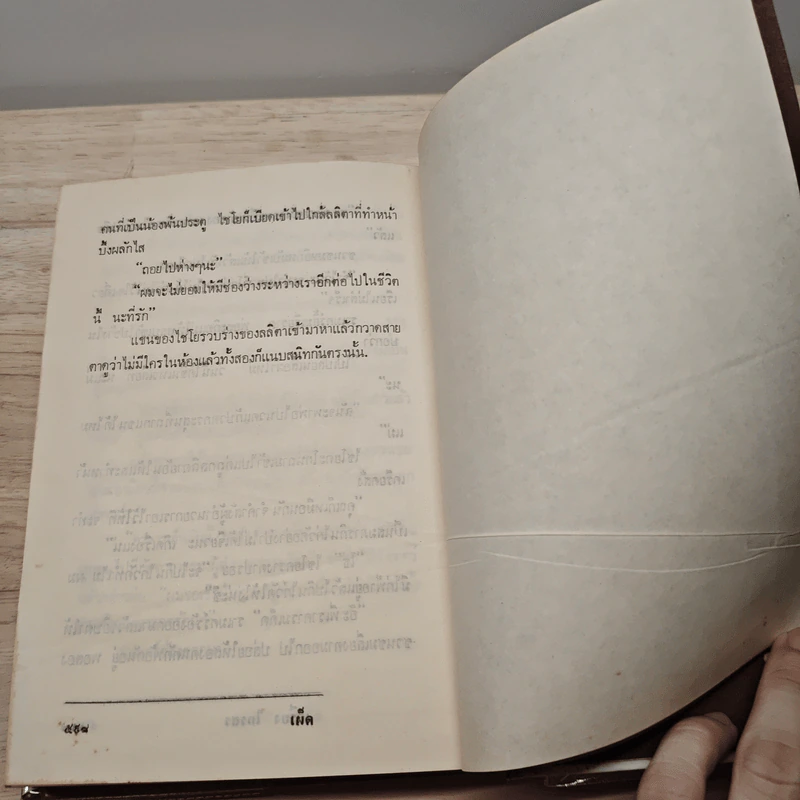 คนที่เป็นน้องพ้นประตู ไชโยก็เบียดเข้าไปใกล้ลลิตาที่ทำหน้า
บึ้งผลักไส
“ถอยไปห่างๆนะ”
“ผมจะไม่ยอมให้มีช่องว่างระหว่างเราอีกต่อไปในชีวิต
นี้ นะที่รัก”
แขนของไชโยรวบร่างของลลิตาเข้ามาหาแล้วกวาดสาย
ตาดูว่าไม่มีใครในห้องแล้วทั้งสองก็แนบสนิทกันตรงนั้น.
เผ็ด